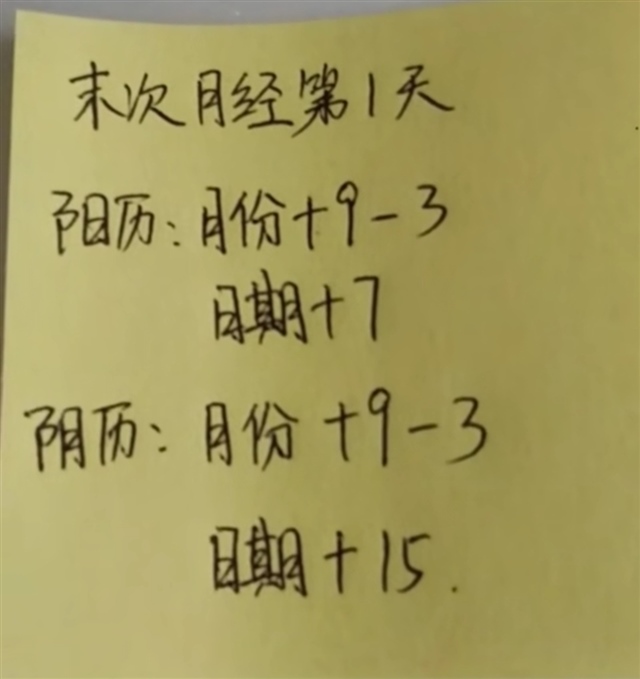 末次月经第1天
阳历:月份+9-3
日期+7
阴历:月份+9-3
日期+15.